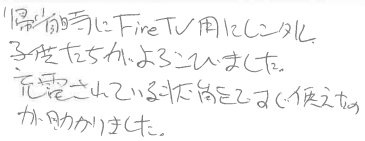 帰省時にFireTV用にレンタル。
子供たちがよろこびました。
充電されている状態ですぐ使えたの
が助かりました。